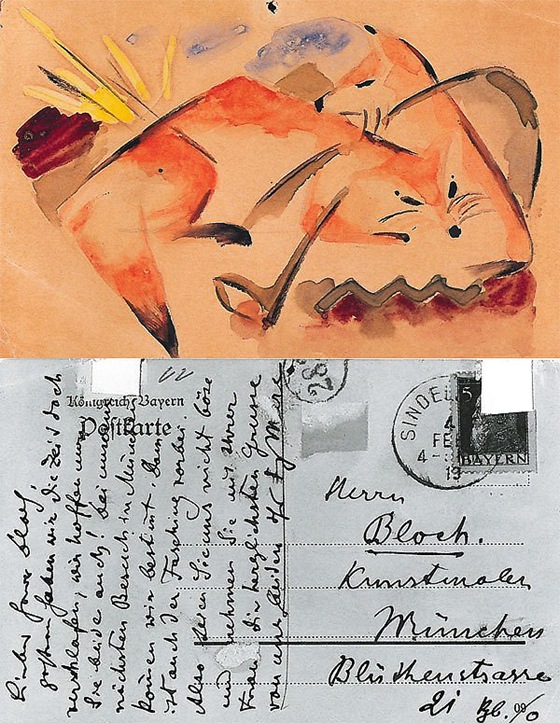 Königreich Bayern
Postkarte
Lieber Herr Bloch,
gestern haben wir die Zeit doch
verschlafen, wir hoffen nur
Sie beide auch! Bei unserm
nächsten Besuch in München
können wir bestimt. Dann
ist auch der Fasching vorbei.
Also seien Sie uns nicht böse
und nehmen Sie mit Ihrer
Frau die herzlichsten Grüsse
von uns beiden Fz Marc
28
SINDEL
4
FE
4-
19
5
BAYERN
Herrn
Bloch.
Kunstmaler
München
Blüthenstrasse
21